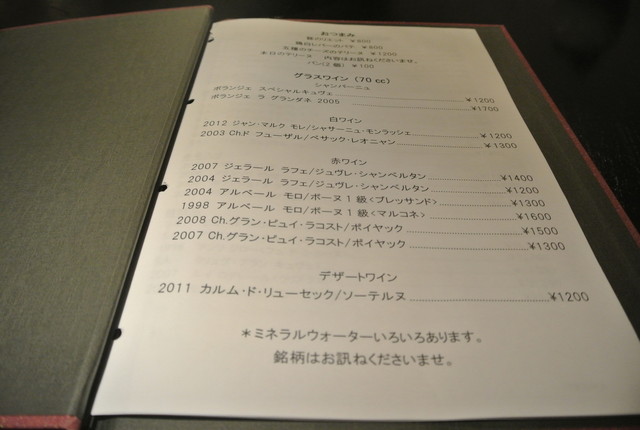 おつまみ
豚のリエット ¥800
鶏白レバーのパテ ¥800
左種のチーズのマリーヌ ¥1200
本日のテリーヌ 内容はお訊ねくださいませ。
パン(2個) ¥100
グラスワイン (70 cc)
シャンパーニュ
ボランジェ スペシャルキュヴェ ¥1200
ボランジェ ラ グランダネ 2005 ¥1700
白ワイン
2012 ジャン・マルク モレ/シャサーニュ・モンラッシェ ¥1200
2003 Ch.ド フューザル/ペサック・レオニャン ¥1300
赤ワイン
2007 ジェラール ラフェ/ジュヴレ・シャンベルタン ¥1400
2004 ジェラール ラフェ/ジュヴレ・シャンベルタン ¥1200
2004 アルベール モロ/ボーヌ1級<ブレッサンド> ¥1300
1998 アルベール モロ/ボーヌ1級<マルコネ> ¥1600
2008 Ch.グラン・ピュイ・ラコスト/ポイヤック ¥1500
2007 Ch.グラン・ピュイ・ラコスト/ポイヤック ¥1300
デザートワイン
2011 カルム・ド・リューセック/ソーテルヌ ¥1200
＊ミネラルウォーターいろいろあります。
銘柄はお訊ねくださいませ。